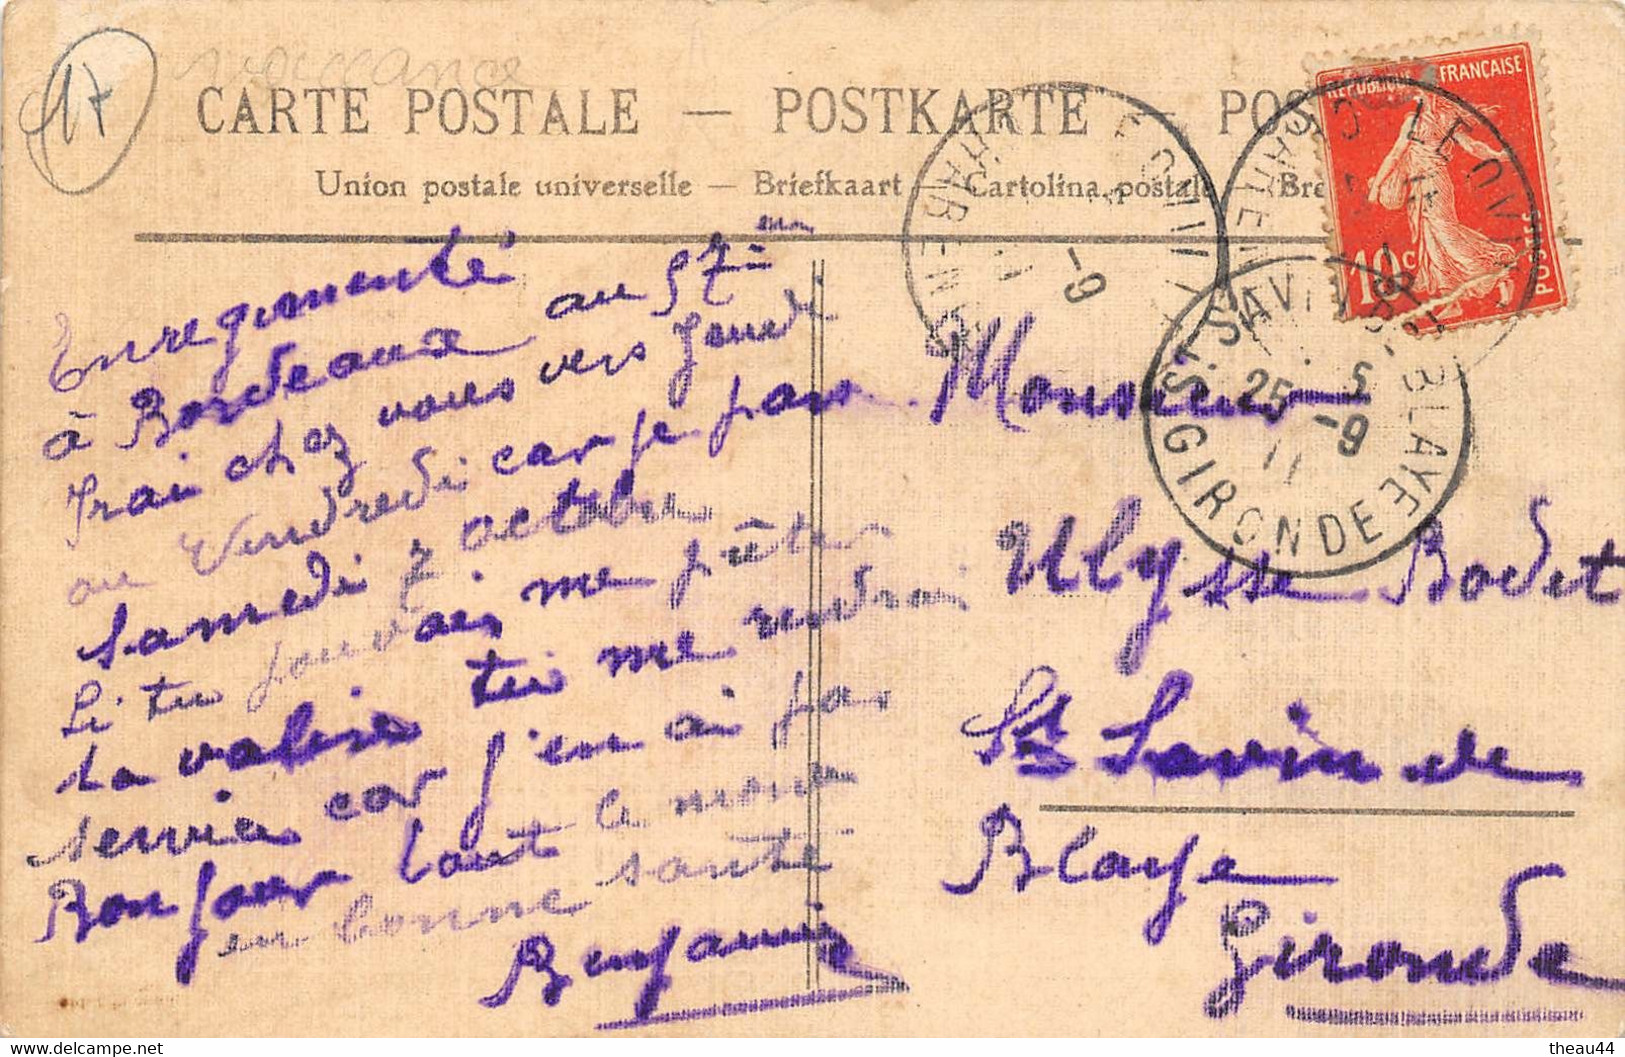 17
CARTE POSTALE — POSTKARTE — POS
Union postale universelle — Briefkaart — Cartolina postale — Bre
REPUBLIQUE FRANÇAISE
10c
POSTES
-9
ST SAVIN DE BLAYE
5
25 -9
11
GIRONDE
Enregimenté
à Bordeaux au 57ième
Irai chez vous vers Jeudi
ou Vendredi car je pars
Samedi 7 octobre
Si tu pouvais me prêter
ta valise tu me rendrai
service car j'en ai pas
Bonjour tout le monde
en bonne santé
Benjamin
Monsieur
Ulysse Bodet
St Savin de
Blaye
Gironde
theau44